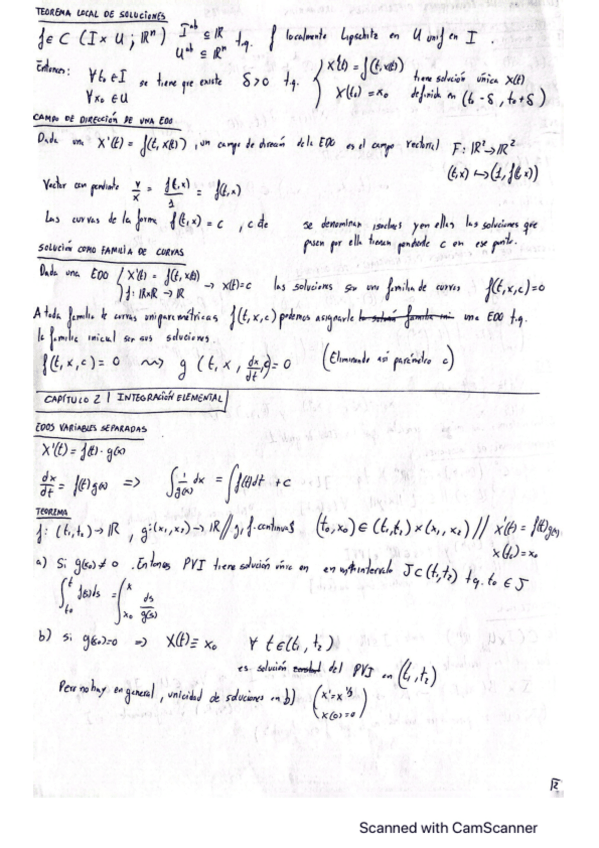 TEOREMA LOCAL DE SOLUCIONES
f ∈ C (I × U ; ℝⁿ) I^ab ⊆ ℝ U^ab ⊆ ℝⁿ t.q. f localmente Lipschitz en U unif en I.
Entonces: ∀t₀ ∈ I ∀x₀ ∈ U se tiene que existe δ>0 t.q. { X'(t) = f(t, x(t)) X(t₀) = x₀ tiene solución única X(t) definida en (t₀ - δ, t₀ + δ)
CAMPO DE DIRECCIÓN DE UNA EDO
Dada una X'(t) = f(t, X(t)), un campo de direcein de la EDO es el campo vectorial F: ℝ² → ℝ²
(t,x) ↦ (1, f(t,x))
Vector con pendiente y/x = f(t,x)/1 = f(t,x)
Las curvas de la forma f(t,x) = c, c de se denominan isoclinas y en ellas las soluciones que
pasen por ella tienen pendiente c en ese punto.
SOLUCIÓN COMO FAMILIA DE CURVAS
Dada una EDO { X'(t) = f(t, x(t)) f: ℝxℝ → ℝ → x(t)=c las soluciones son una familia de curvas f(t,x,c)=0
A toda familia de curvas uniparamétricas f(t,x,c) podemos asignarle una EDO t.q.
la familia inicial ser sus soluciones.
f(t,x,c) = 0 ⇝ g (t, x, dx/dt, c) = 0 (Eliminando así parámetro c)
CAPÍTULO 2 | INTEGRACIÓN ELEMENTAL
EDOS VARIABLES SEPARADAS
X'(t) = f(t) · g(x)
dx/dt = f(t) g(x) => ∫ 1/g(x) dx = ∫ f(t) dt + c
TEOREMA
f: (t₁, t₂) → ℝ, g: (x₁, x₂) → ℝ // g, f continuas (t₀, x₀) ∈ (t₁, t₂) × (x₁, x₂) // x'(t) = f(t) g(x)
x(t₀) = x₀
a) Si g(x₀) ≠ 0. Entonces PVI tiene solución única en intervalo J ⊂ (t₁, t₂) t.q. t₀ ∈ J
∫_{t₀}^{t} f(s) ds = ∫_{x₀}^{x} ds/g(s)
b) Si g(x₀)=0 => X(t) ≡ x₀ ∀ t ∈ (t₁, t₂)
es solución del PVI en (t₁, t₂)
Pero no hay en general, unicidad de soluciones en b) (x' = x^{1/3} x(0) = 0)
12
Scanned with CamScanner